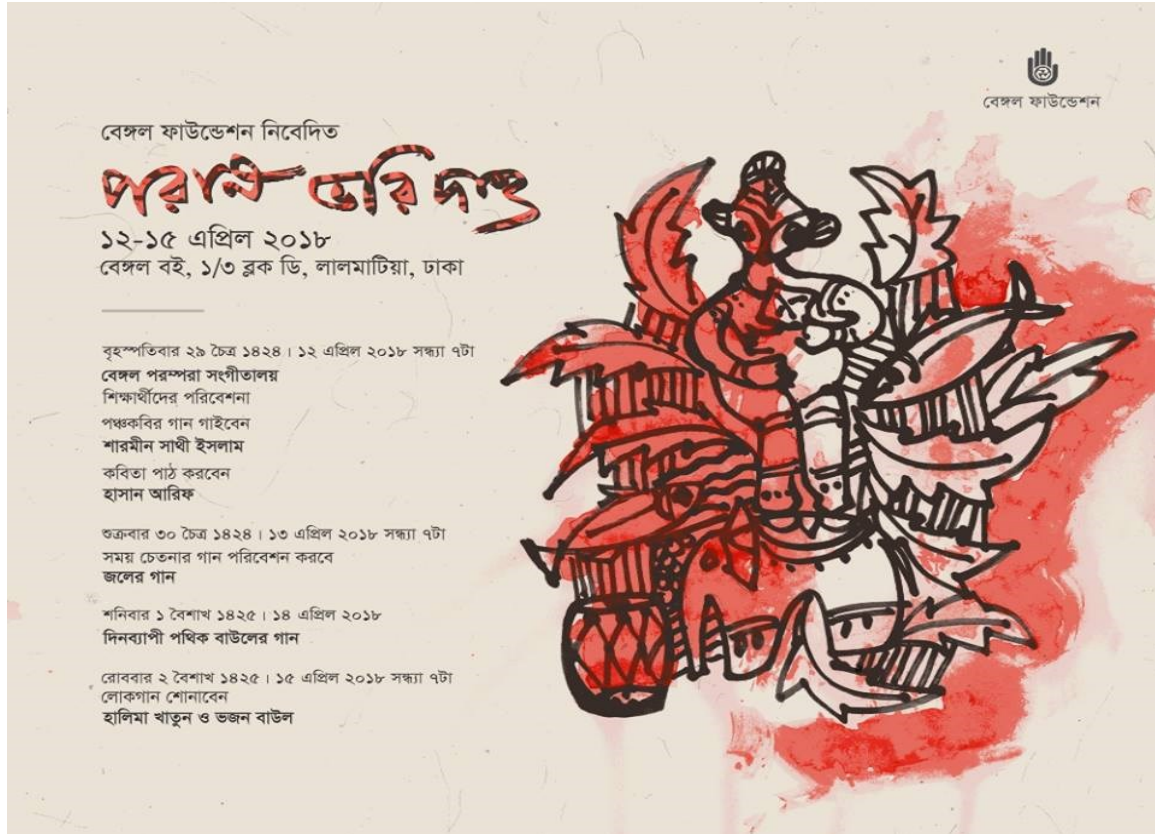 বেঙ্গল ফাউন্ডেশন
বেঙ্গল ফাউন্ডেশন নিবেদিত
পরান ভরি দাও
১২-১৫ এপ্রিল ২০১৮
বেঙ্গল বই, ১/৩ ব্লক ডি, লালমাটিয়া, ঢাকা
বৃহস্পতিবার ২৯ চৈত্র ১৪২৪। ১২ এপ্রিল ২০১৮ সন্ধ্যা ৭টা
বেঙ্গল পরম্পরা সংগীতালয়
শিক্ষার্থীদের পরিবেশনা
পঞ্চকবির গান গাইবেন
শারমীন সাথী ইসলাম
কবিতা পাঠ করবেন
হাসান আরিফ
শুক্রবার ৩০ চৈত্র ১৪২৪। ১৩ এপ্রিল ২০১৮ সন্ধ্যা ৭টা
সময় চেতনার গান পরিবেশন করবে
জলের গান
শনিবার ১ বৈশাখ ১৪২৫। ১৪ এপ্রিল ২০১৮
দিনব্যাপী পথিক বাউলের গান
রোববার ২ বৈশাখ ১৪২৫। ১৫ এপ্রিল ২০১৮ সন্ধ্যা ৭টা
লোকগান শোনাবেন
হালিমা খাতুন ও ভজন বাউল